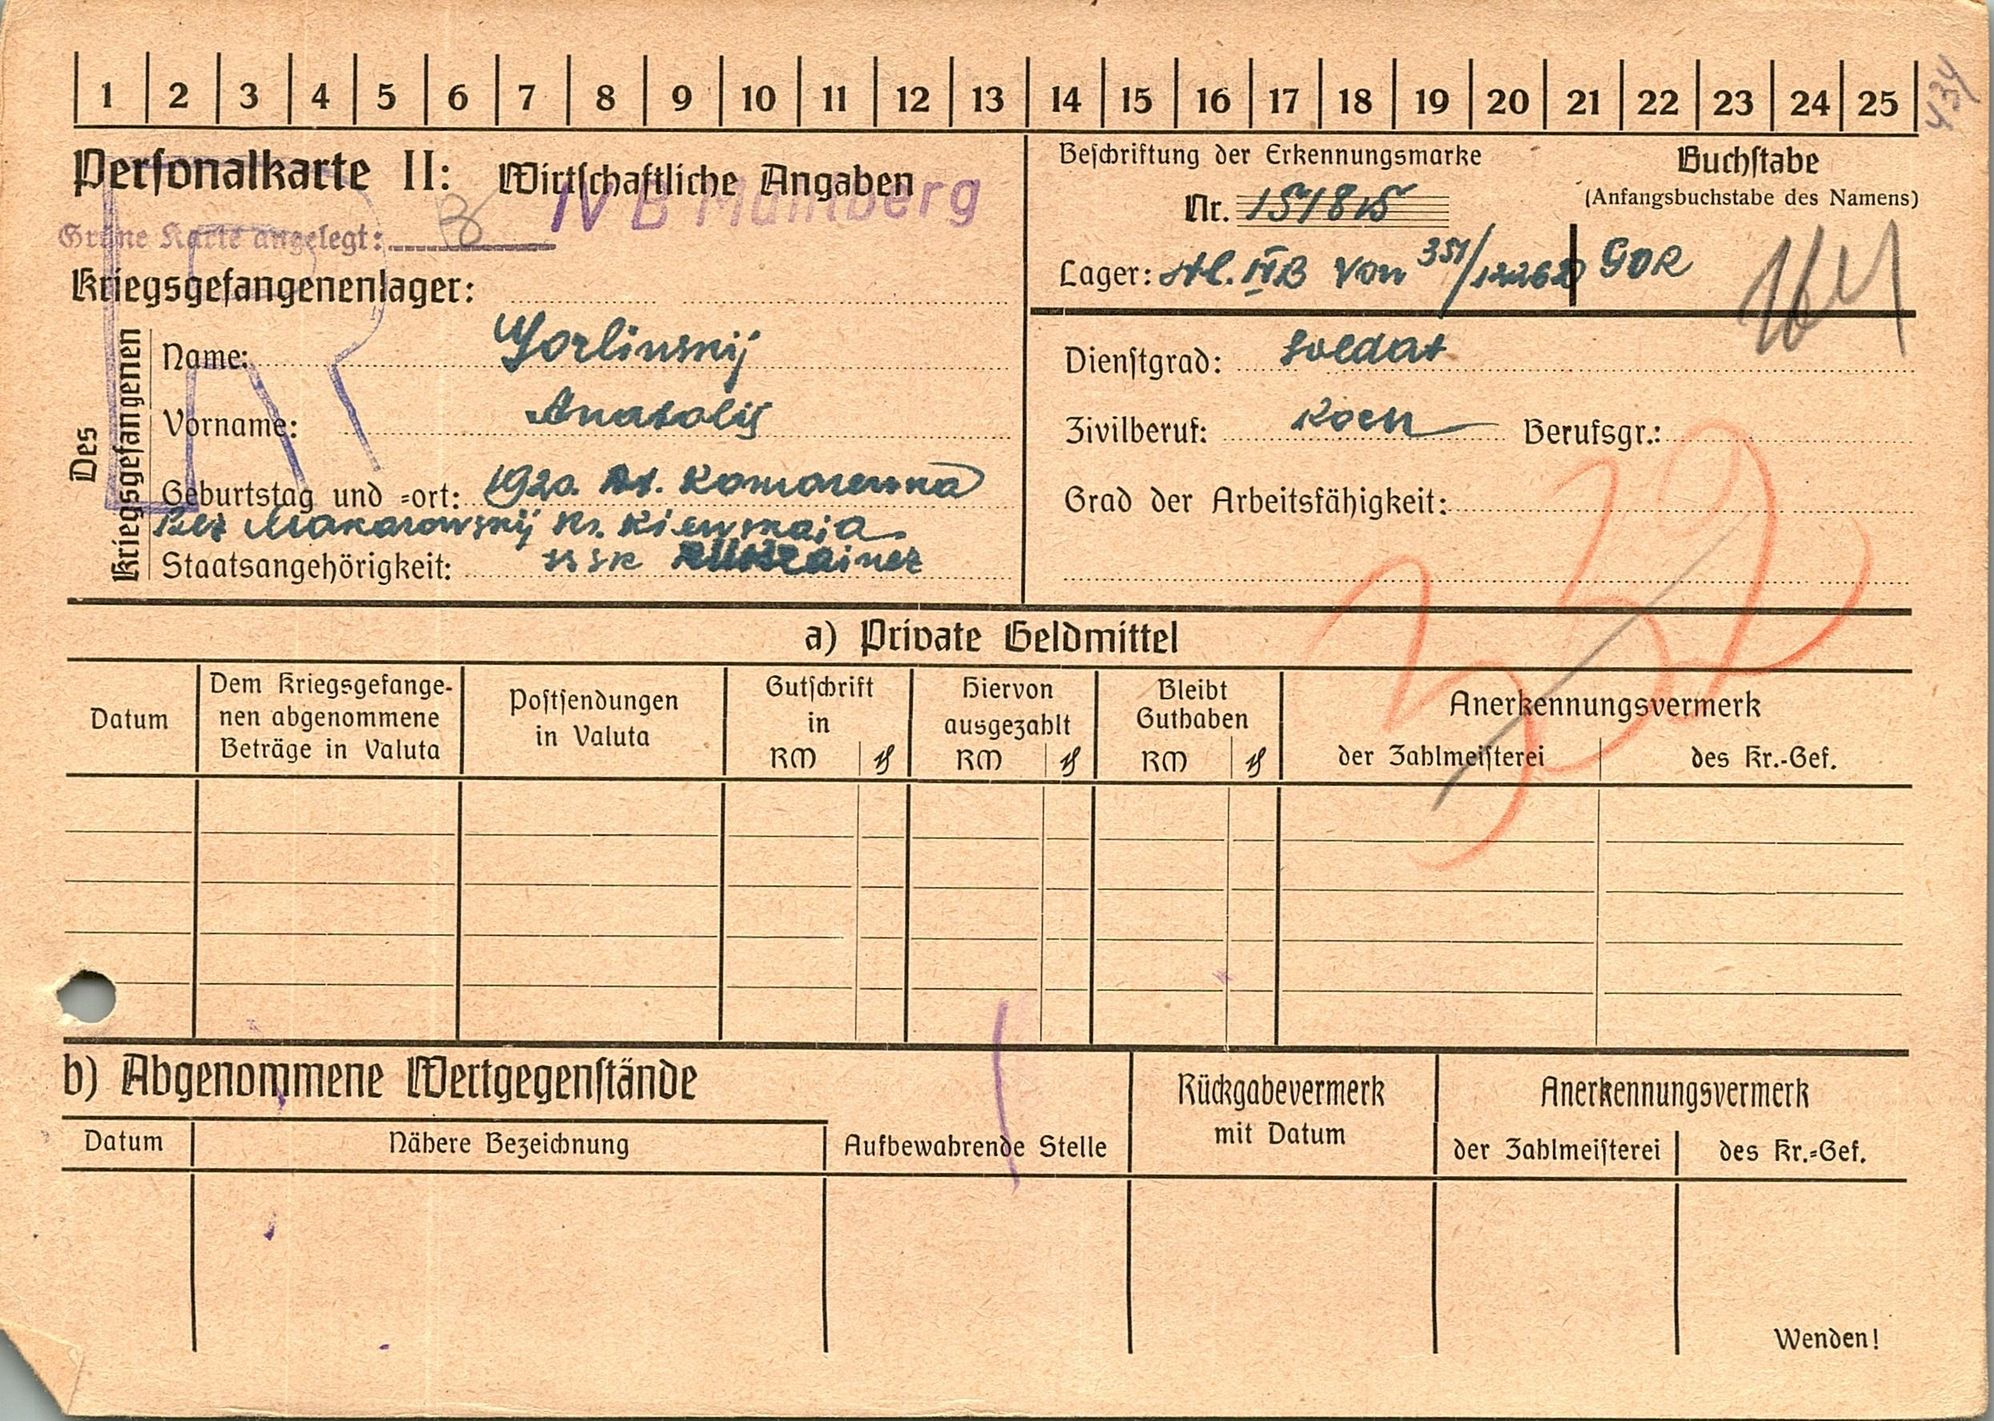 1 2 3 4 5 6 7 8 9 10 11 12 13 14 15 16 17 18 19 20 21 22 23 24 25
434
Personalkarte II: Wirtschaftliche Angaben
IV B Mühlberg
Grüne Karte angelegt:
Kriegsgefangenenlager:
Beschriftung der Erkennungsmarke
Nr. 151815
Lager: Stl. IVB von 351/
Buchstabe
(Anfangsbuchstabe des Namens)
GOR
Des Kriegsgefangenen
Name: Gorlinskij
Vorname: Anatolij
Geburtstag und =ort: 1920.
Bez Makarowskij Kr. Kiewskaja
Staatsangehörigkeit: Ukrainer
Dienstgrad: Soldat
Zivilberuf: Koch Berufsgr.:
Grad der Arbeitsfähigkeit:
a) Private Geldmittel
Datum
Dem Kriegsgefange-
nen abgenommene
Beträge in Valuta
Postsendungen
in Valuta
Gutschrift
in
RM ₰
Hiervon
ausgezahlt
RM ₰
Bleibt
Guthaben
RM ₰
Anerkennungsvermerk
der Zahlmeisterei des Kr.-Gef.
b) Abgenommene Wertgegenstände
Datum Nähere Bezeichnung Aufbewahrende Stelle
Rückgabevermerk
mit Datum
Anerkennungsvermerk
der Zahlmeisterei des Kr.=Gef.
Wenden!